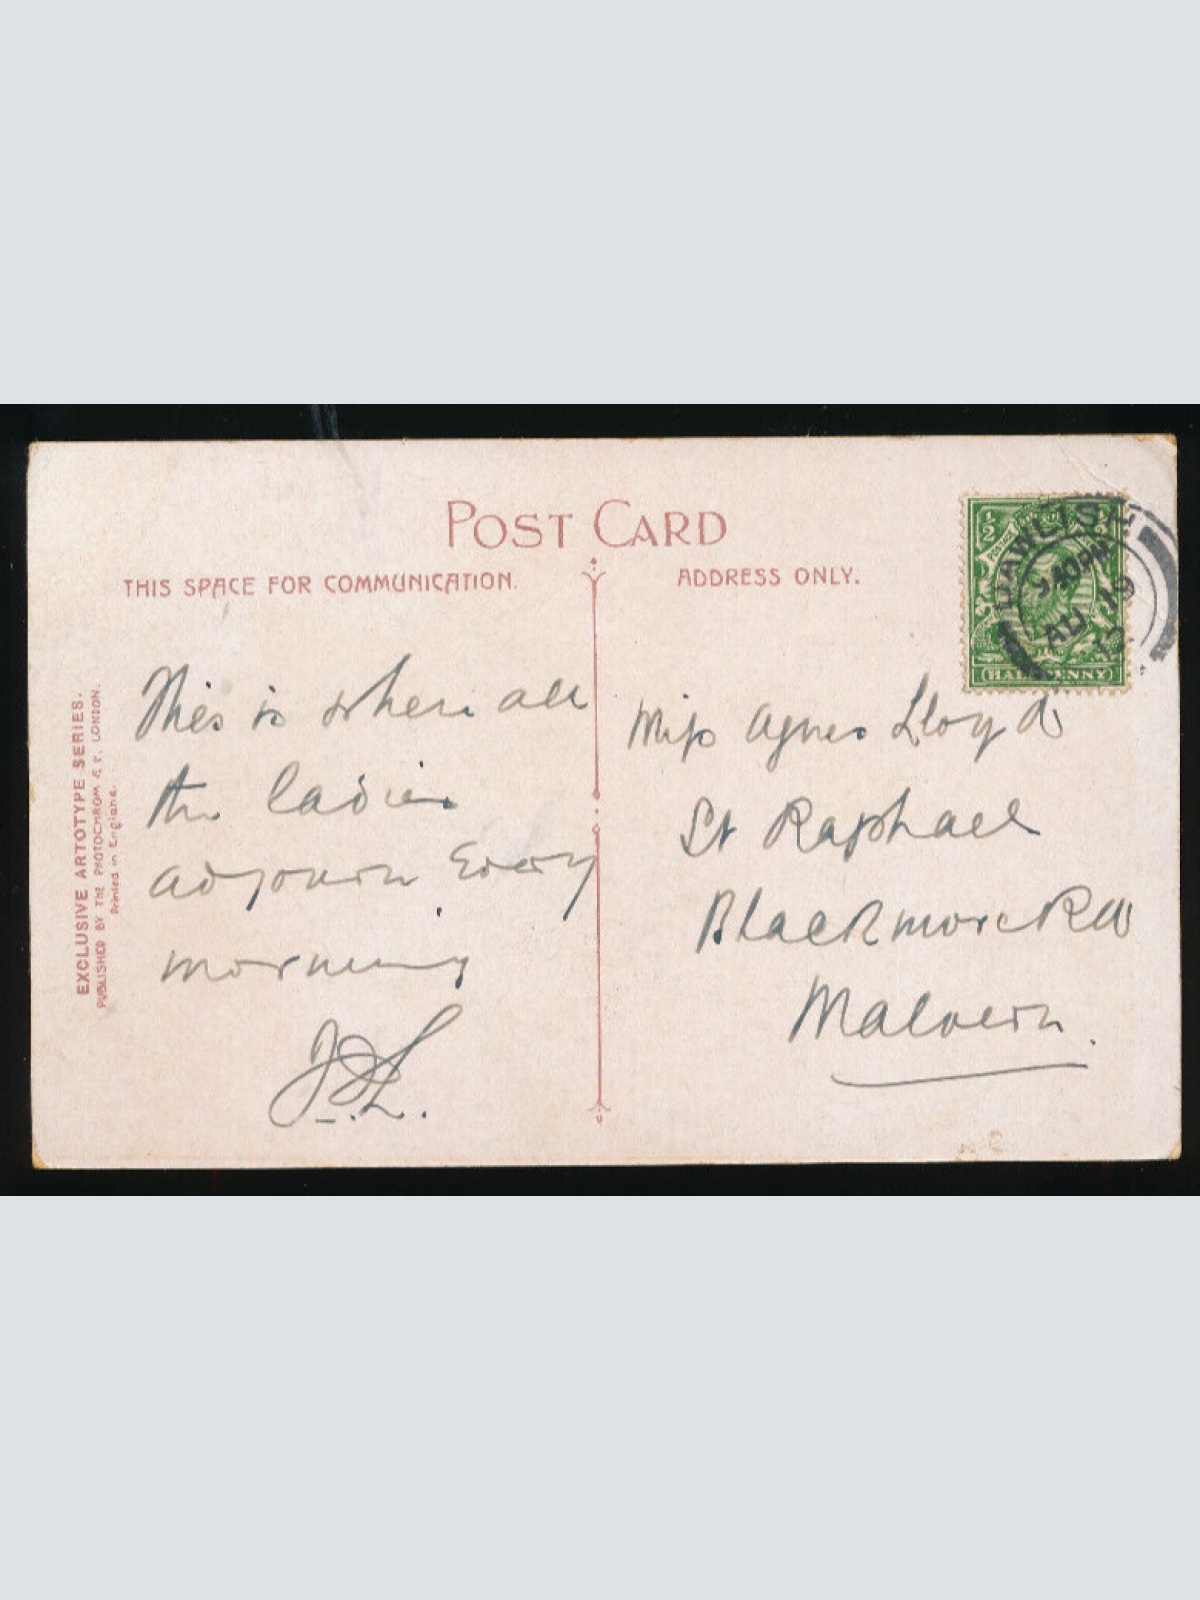 POST CARD
THIS SPACE FOR COMMUNICATION.
ADDRESS ONLY.
EXCLUSIVE ARTOTYPE SERIES.
PUBLISHED BY THE PHOTOCHROM Co. Lt. LONDON.
Printed in England.
This is where all
the ladies
adjourn Every
morning
J.L.
Miss Agnes Lloyd
St Raphael
Blackmore Rd
Malvern.
DAWLISH
AU 19
HALFPENNY
1/2